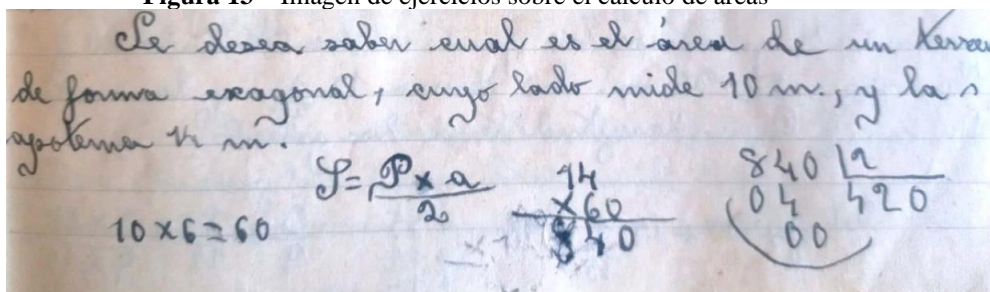 Figura 15 – Imagen de ejercicios sobre el cálculo de áreas
Se desea saber cual es el área de un
de forma exagonal, cuyo lado mide 10 m., y la
apotema 14 m.
S = P x a / 2
14
x 60
840
840 |2
04 420
00
10 x 6 = 60